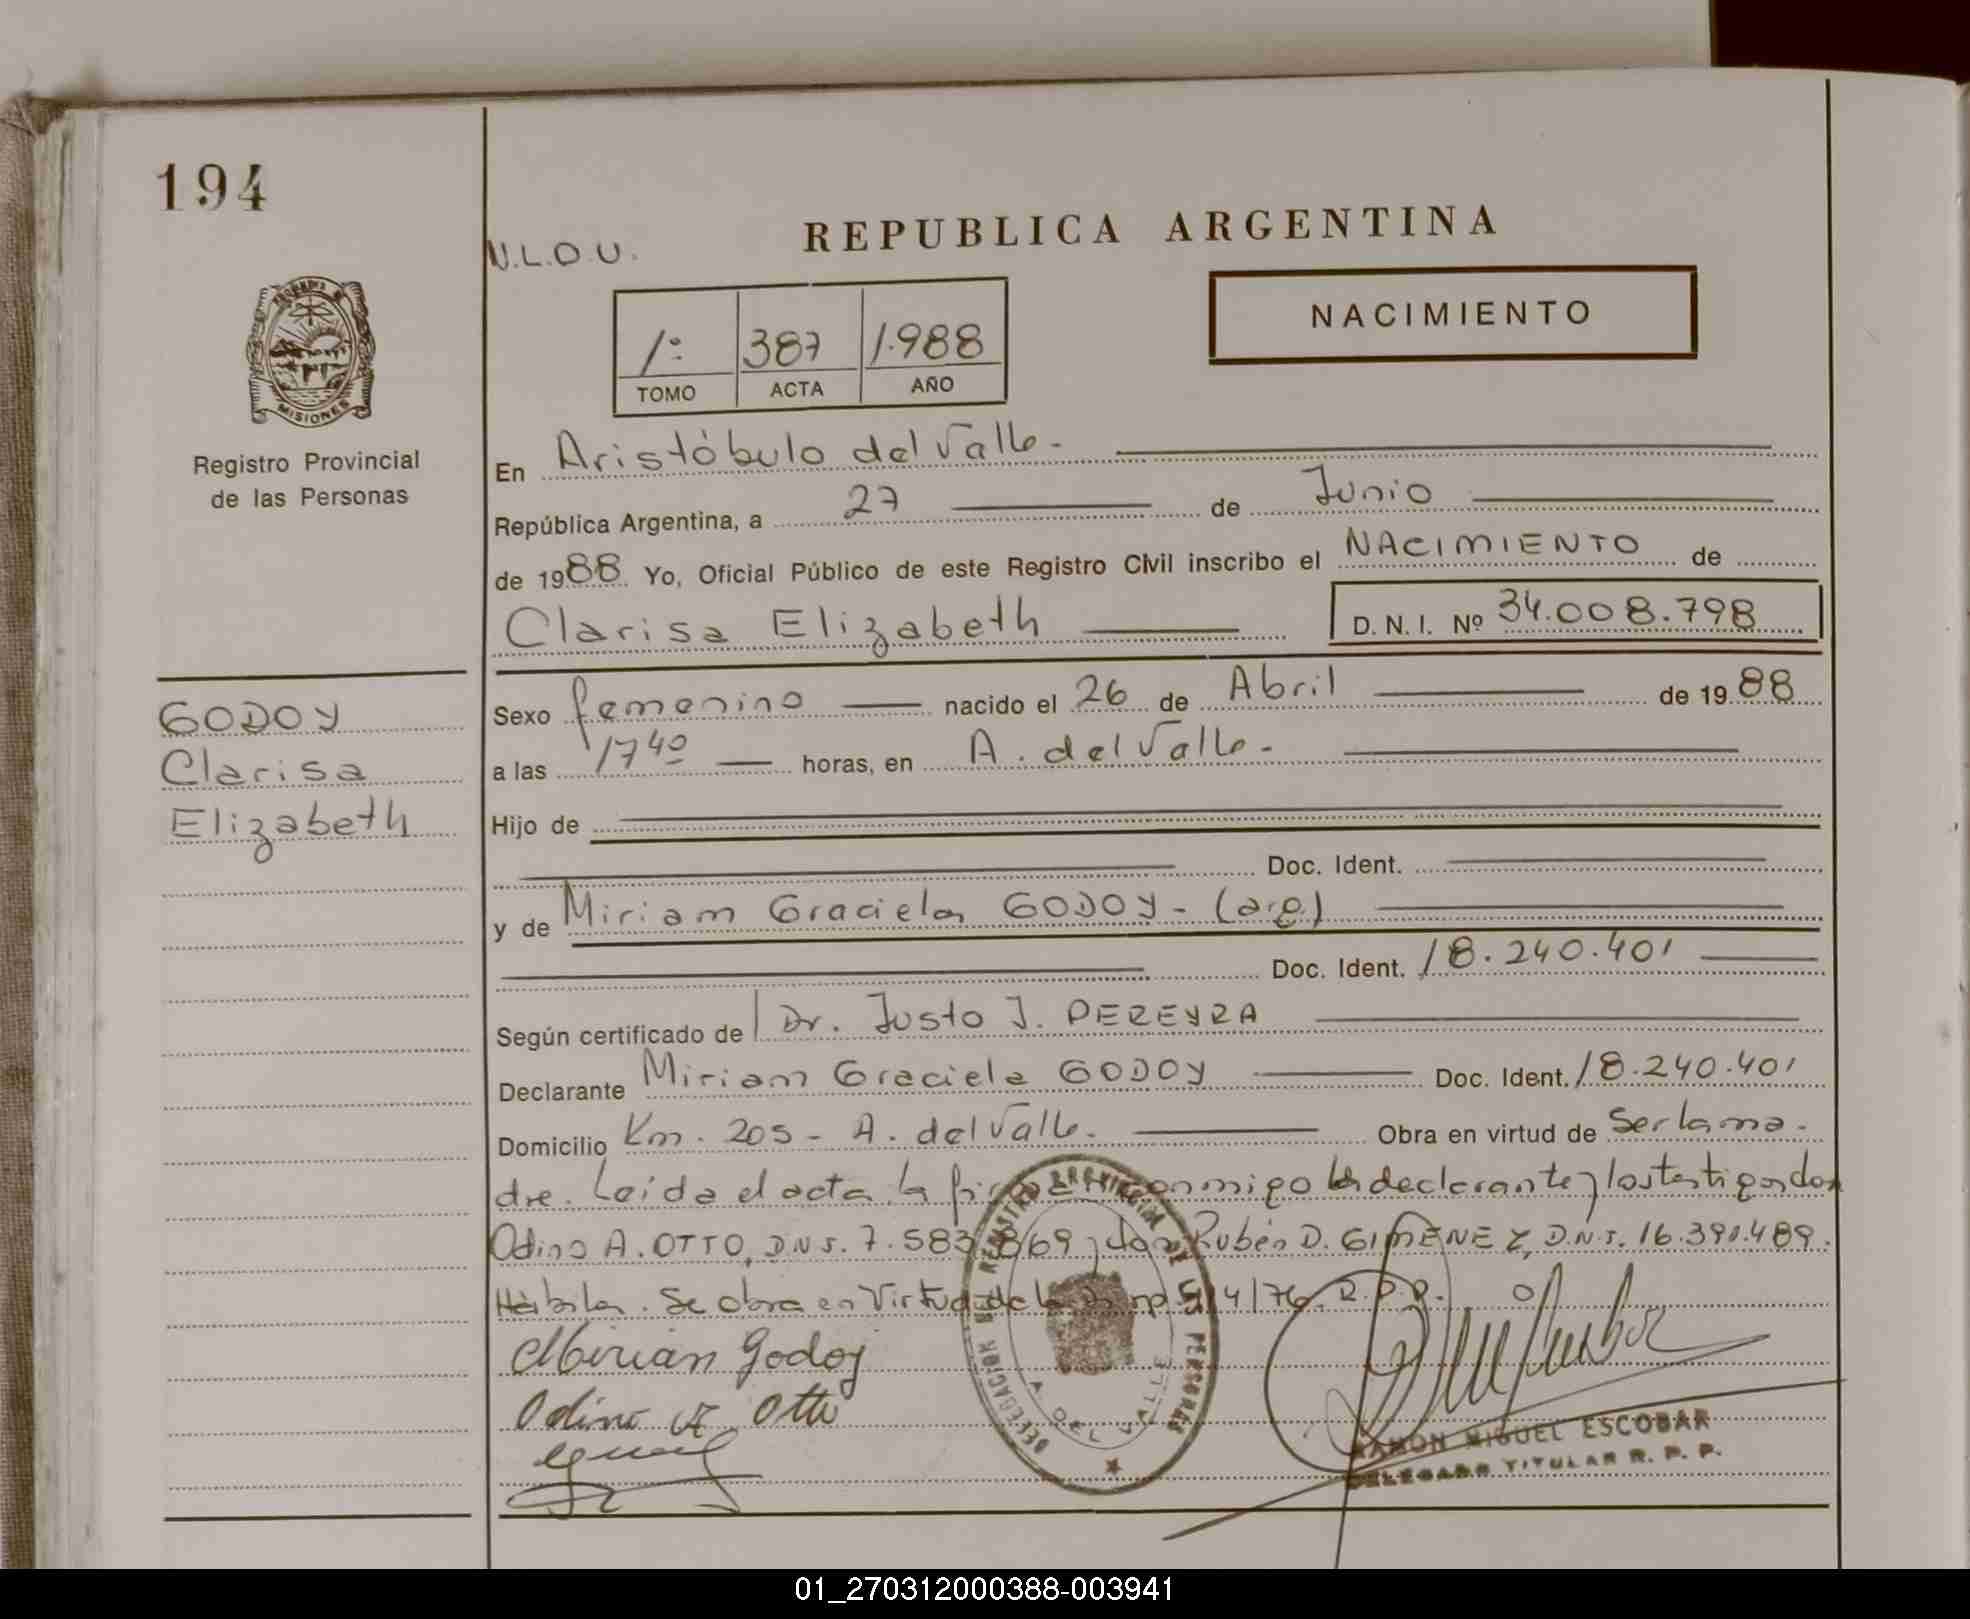 194
REPUBLICA ARGENTINA
N.L.O.U.
NACIMIENTO
1º 387 1.988
TOMO ACTA AÑO
MISIONES
Registro Provincial
de las Personas
En Aristóbulo del Valle.-
República Argentina, a 27 de Junio
de 1988 Yo, Oficial Público de este Registro Civil inscribo el NACIMIENTO de
Clarisa Elizabeth D.N.I. Nº 34.008.798
GODOY
Clarisa
Elizabeth
Sexo femenino nacido el 26 de Abril de 1988
a las 17 40 horas, en A. del Valle.-
Hijo de
Doc. Ident.
y de Miriam Graciela GODOY - (arg)
Doc. Ident. 18.240.401
Según certificado de Dr. Justo J. PEREYRA
Declarante Miriam Graciela GODOY Doc. Ident. 18.240.401
Domicilio Km. 205 - A. del Valle. Obra en virtud de Ser la ma-
dre. Leida el acta la conmigo la declarante y los testigos don
Odino A. OTTO, D.N.I. 7.583.869 y don Rubén D. GIMENEZ, D.N.I. 16.390.489.
Hábiles. Se obra en Virtud de la 4/76 R.P.P.
Mirian Godoy
Odino A Otto
DELEGACION DEL REGISTRO PROVINCIAL DE LAS PERSONAS
A. DEL VALLE
RAMON MIGUEL ESCOBAR
DELEGADO TITULAR R. P. P.
01_270312000388-003941